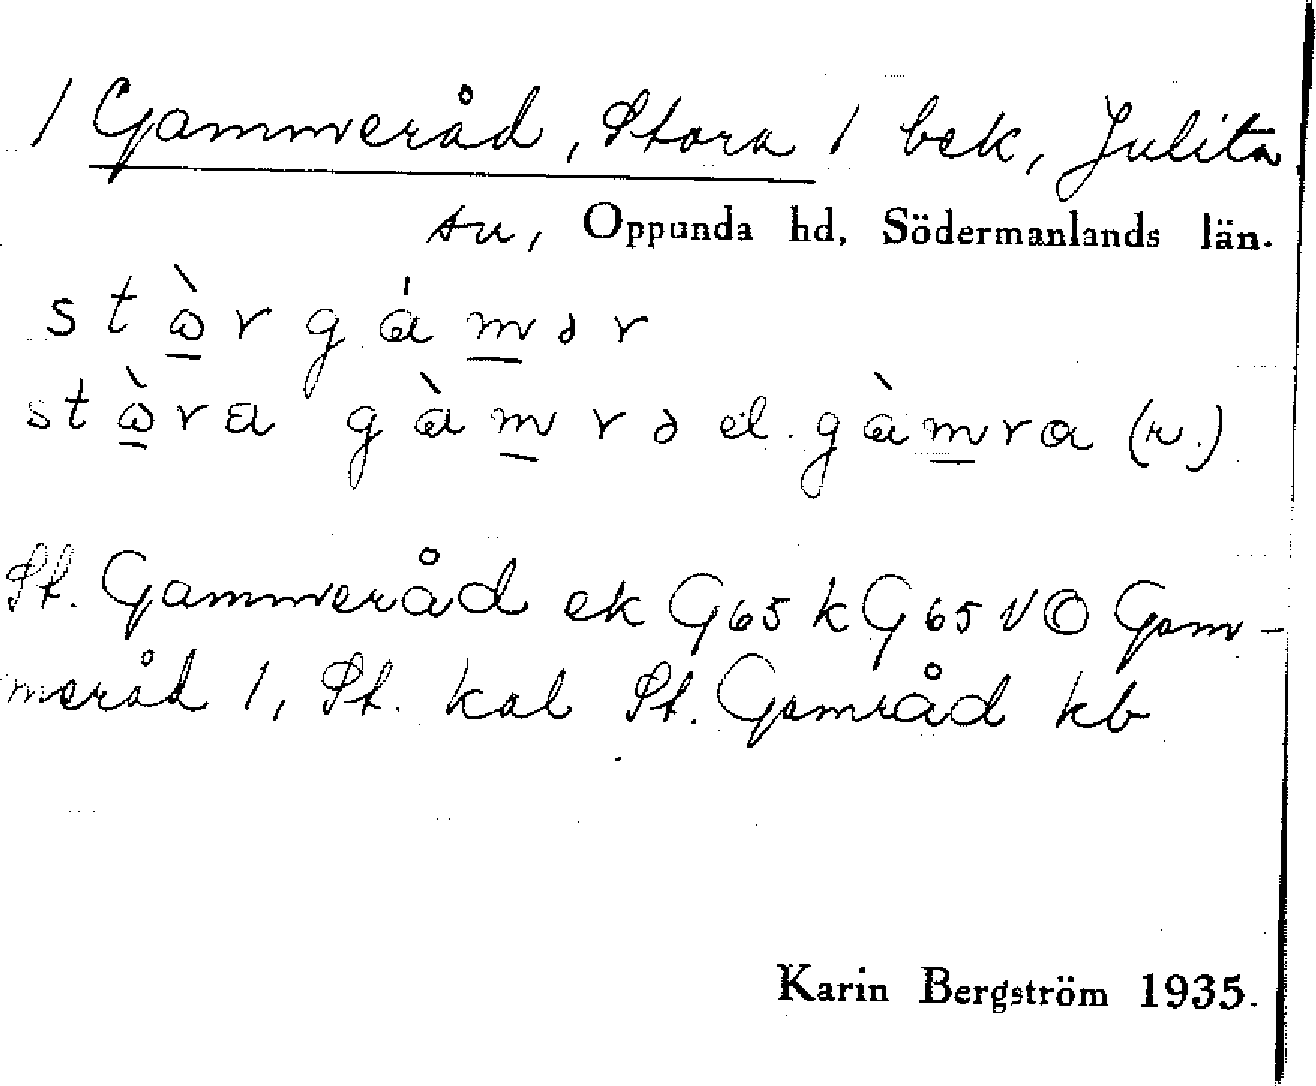 / Gammeråd, Stora / bek, Julita
sn, Oppunda hd, Södermanlands län.
stɷ̀r gámər
stɷ̀ra gàmrə el. gàmra (r.)
St. Gammeråd ek G65 k G65 V © Gam-
meråd 1, St. kal St. Gamråd kb
Karin Bergström 1935.